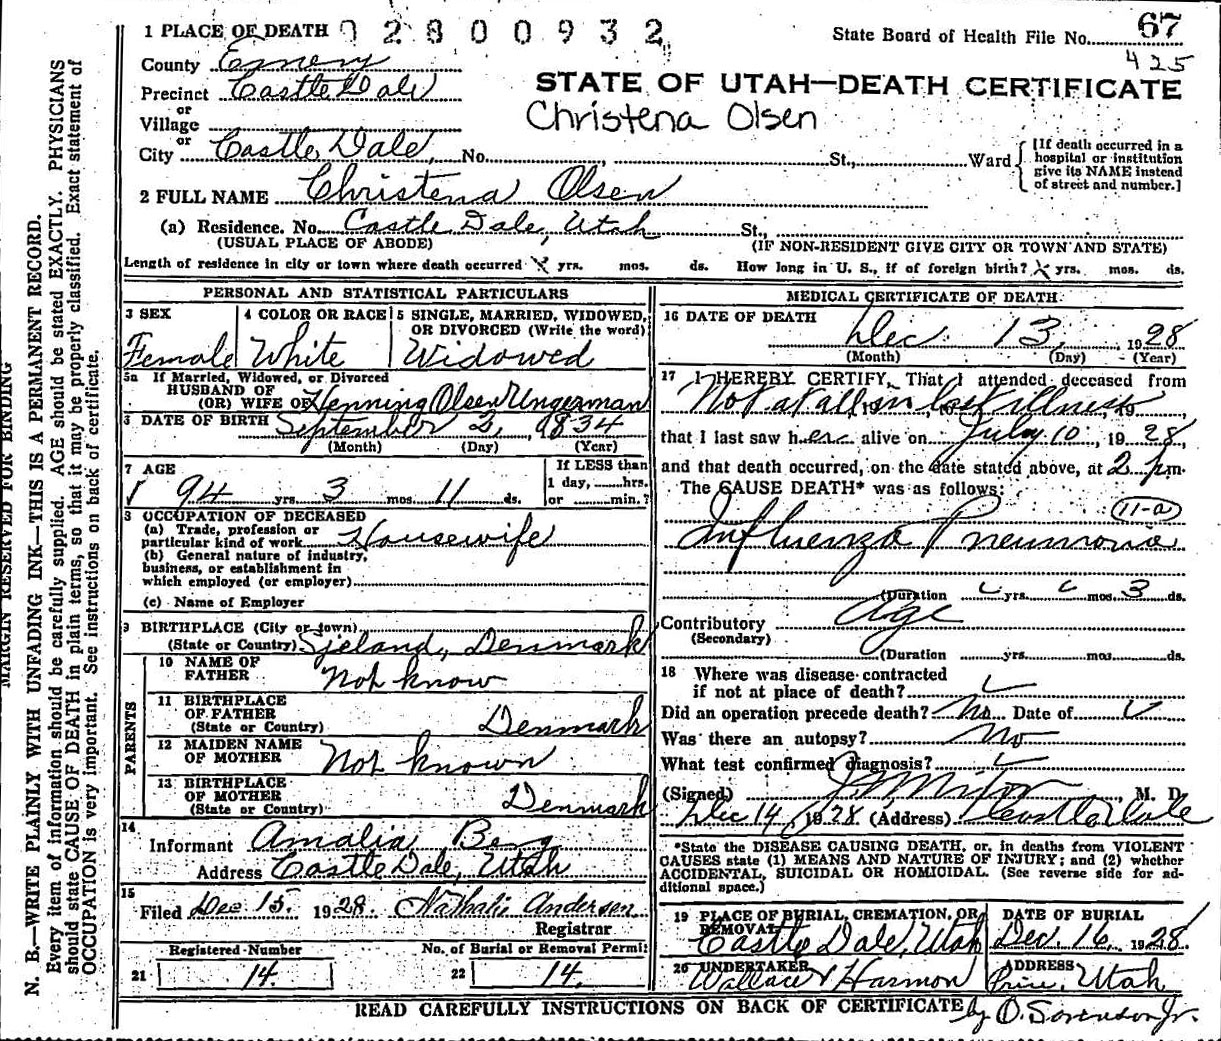 1 PLACE OF DEATH 02800932
State Board of Health File No. 67
425
County Emery
Precinct Castle Dale
or
Village
or
City Castle Dale, No. St., Ward
[If death occurred in a hospital or institution give its NAME instead of street and number.]
STATE OF UTAH—DEATH CERTIFICATE
Christena Olsen
2 FULL NAME Christena Olsen
(a) Residence. No. Castle Dale, Utah St.,
(USUAL PLACE OF ABODE) (IF NON-RESIDENT GIVE CITY OR TOWN AND STATE)
Length of residence in city or town where death occurred yrs. mos. ds. How long in U. S., if of foreign birth? yrs. mos. ds.
PERSONAL AND STATISTICAL PARTICULARS
3 SEX Female
4 COLOR OR RACE White
5 SINGLE, MARRIED, WIDOWED, OR DIVORCED (Write the word) Widowed
5a If Married, Widowed, or Divorced
HUSBAND OF
(OR) WIFE OF Henning Olsen Ungerman
6 DATE OF BIRTH September 2, 1834
(Month) (Day) (Year)
7 AGE
94 yrs. 3 mos. 11 ds.
If LESS than 1 day, hrs. or min.?
8 OCCUPATION OF DECEASED
(a) Trade, profession or particular kind of work Housewife
(b) General nature of industry, business, or establishment in which employed (or employer)
(c) Name of Employer
9 BIRTHPLACE (City or town)
(State or Country) Sjeland, Denmark
PARENTS
10 NAME OF FATHER Not know
11 BIRTHPLACE OF FATHER (State or Country) Denmark
12 MAIDEN NAME OF MOTHER Not known
13 BIRTHPLACE OF MOTHER (State or Country) Denmark
14
Informant Amalia Berg
Address Castle Dale, Utah
15
Filed Dec 15. 1928. Nathalie Andersen
Registrar
Registered Number
21 14.
No. of Burial or Removal Permit
22 14.
MEDICAL CERTIFICATE OF DEATH
16 DATE OF DEATH
Dec 13, 1928
(Month) (Day) (Year)
17 I HEREBY CERTIFY, That I attended deceased from
Not at all in last illness 19
that I last saw her alive on July 10, 1928,
and that death occurred, on the date stated above, at 2 p.m.
The CAUSE DEATH* was as follows:
11-a
Influenza Pneumonia
(Duration yrs. mos. 3 ds.
Contributory Age
(Secondary)
(Duration yrs. mos. ds.
18 Where was disease contracted
if not at place of death?
Did an operation precede death? No Date of
Was there an autopsy? No
What test confirmed diagnosis?
(Signed) M. D.
Dec 14, 1928 (Address) Castle Dale
*State the DISEASE CAUSING DEATH, or, in deaths from VIOLENT
CAUSES state (1) MEANS AND NATURE OF INJURY; and (2) whether
ACCIDENTAL, SUICIDAL OR HOMICIDAL. (See reverse side for ad-
ditional space.)
19 PLACE OF BURIAL, CREMATION, OR REMOVAL
Castle Dale, Utah
DATE OF BURIAL
Dec. 16, 1928
20 UNDERTAKER
Wallace & Harmon
ADDRESS
Price, Utah
READ CAREFULLY INSTRUCTIONS ON BACK OF CERTIFICATE
by O. Sorenson Jr.
MARGIN RESERVED FOR BINDING
N. B.—WRITE PLAINLY WITH UNFADING INK—THIS IS A PERMANENT RECORD.
Every item of information should be carefully supplied. AGE should be stated EXACTLY. PHYSICIANS
should state CAUSE OF DEATH in plain terms, so that it may be properly classified. Exact statement of
OCCUPATION is very important. See instructions on back of certificate.